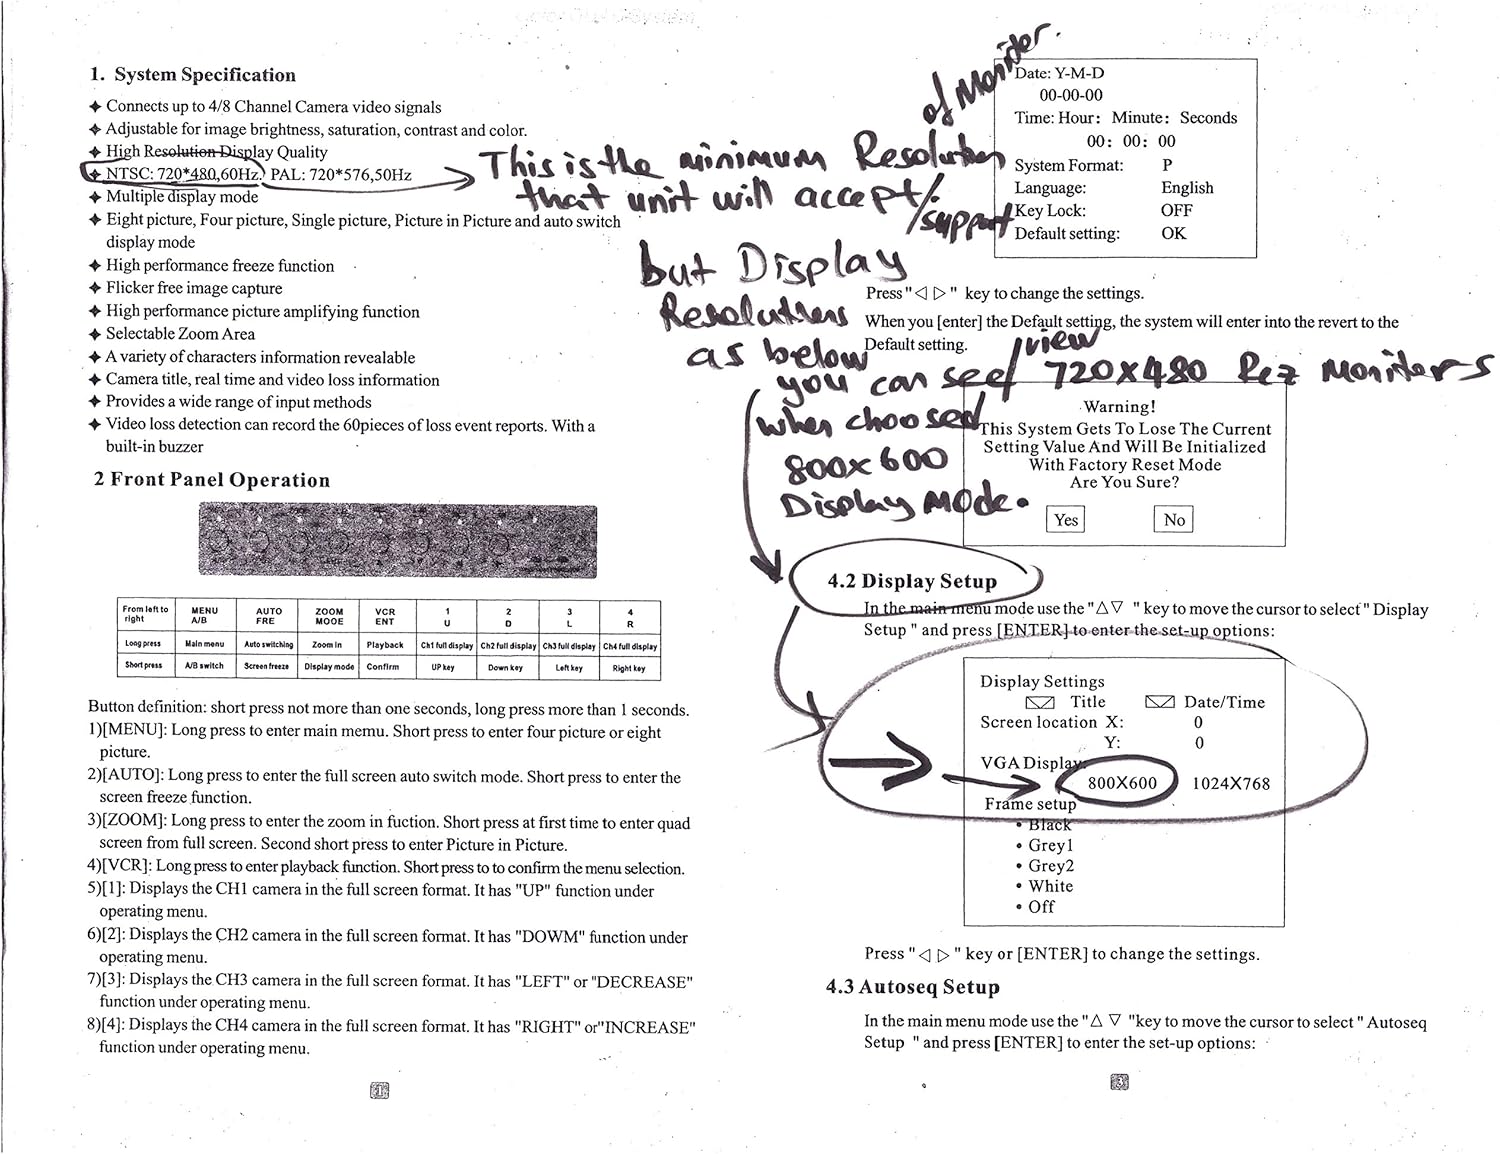 1. System Specification
✦ Connects up to 4/8 Channel Camera video signals
✦ Adjustable for image brightness, saturation, contrast and color.
✦ High Resolution Display Quality
✦ NTSC: 720*480,60Hz. PAL: 720*576,50Hz
✦ Multiple display mode
✦ Eight picture, Four picture, Single picture, Picture in Picture and auto switch
display mode
✦ High performance freeze function
✦ Flicker free image capture
✦ High performance picture amplifying function
✦ Selectable Zoom Area
✦ A variety of characters information revealable
✦ Camera title, real time and video loss information
✦ Provides a wide range of input methods
✦ Video loss detection can record the 60pieces of loss event reports. With a
built-in buzzer
2 Front Panel Operation
From left to right | MENU A/B | AUTO FRE | ZOOM MOOE | VCR ENT | 1 U | 2 D | 3 L | 4 R
Long press | Main menu | Auto switching | Zoom in | Playback | Ch1 full display | Ch2 full display | Ch3 full display | Ch4 full display
Short press | A/B switch | Screen freeze | Display mode | Confirm | UP key | Down key | Left key | Right key
Button definition: short press not more than one seconds, long press more than 1 seconds.
1)[MENU]: Long press to enter main memu. Short press to enter four picture or eight
picture.
2)[AUTO]: Long press to enter the full screen auto switch mode. Short press to enter the
screen freeze function.
3)[ZOOM]: Long press to enter the zoom in fuction. Short press at first time to enter quad
screen from full screen. Second short press to enter Picture in Picture.
4)[VCR]: Long press to enter playback function. Short press to to confirm the menu selection.
5)[1]: Displays the CH1 camera in the full screen format. It has "UP" function under
operating menu.
6)[2]: Displays the CH2 camera in the full screen format. It has "DOWM" function under
operating menu.
7)[3]: Displays the CH3 camera in the full screen format. It has "LEFT" or "DECREASE"
function under operating menu.
8)[4]: Displays the CH4 camera in the full screen format. It has "RIGHT" or"INCREASE"
function under operating menu.
1
This is the minimum Resolution
of Moniter.
that unit will accept/
support
but Display
Resolutions
as below
you can see/view 720X480 Rez Moniters
when choosed
800x600
Display Mode.
Date: Y-M-D
00-00-00
Time: Hour: Minute: Seconds
00: 00: 00
System Format: P
Language: English
Key Lock: OFF
Default setting: OK
Press "◁ ▷" key to change the settings.
When you [enter] the Default setting, the system will enter into the revert to the
Default setting.
Warning!
This System Gets To Lose The Current
Setting Value And Will Be Initialized
With Factory Reset Mode
Are You Sure?
Yes No
4.2 Display Setup
In the main menu mode use the "△▽ " key to move the cursor to select " Display
Setup " and press [ENTER] to enter the set-up options:
Display Settings
Title Date/Time
Screen location X: 0
Y: 0
VGA Display:
800X600 1024X768
Frame setup
• Black
• Grey1
• Grey2
• White
• Off
Press "◁ ▷" key or [ENTER] to change the settings.
4.3 Autoseq Setup
In the main menu mode use the "△ ▽ "key to move the cursor to select " Autoseq
Setup " and press [ENTER] to enter the set-up options:
3